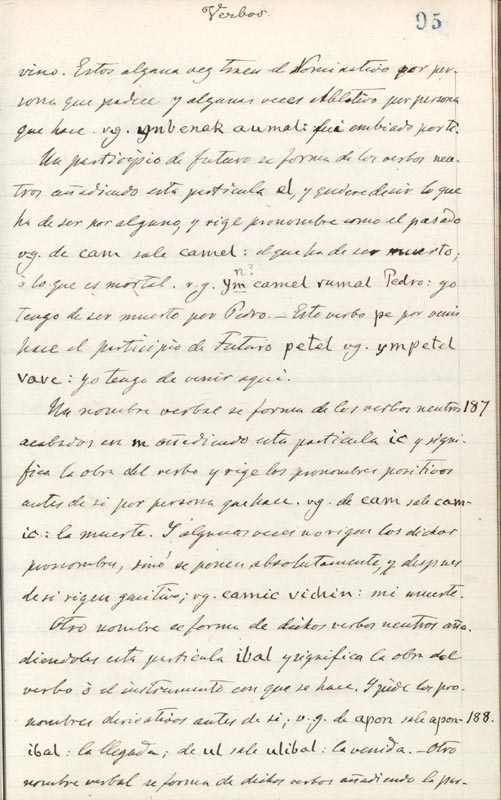 Verbos.
95
vino. Estos alguna vez traen el Nominativo por per-
sona que padece y algunas veces Ablativo por persona
que hace. vg. ynbenak aumal: fué embiado por tí.
Un participio de futuro se forma de los verbos neu-
tros añadiendo esta particula el, y quiere desir lo que
ha de ser por alguno, y rige pronombre como el pasado
vg. de cam sale camel: el que ha de ser muerto;
ò lo que es mortal. v.g. ym n? camel rumal Pedro: yo
tengo de ser muerto por Pedro. — Este verbo pe por venir
hace el participio de Futuro petel vg. ympetel
vave: yo tengo de venir aquí.
Un nombre verbal se forma de los verbos neutros 187
acabados en m añadiendo esta particula ic y signi-
fica la obra del verbo y rige los pronombres positivos
antes de si por persona que hace. vg. de cam sale cam-
ic: la muerte. Y algunas veces no rigen los dichos
pronombres, sinó se ponen absolutamente, y despues
de si rigen genitivo; vg. camic vichin: mi muerte.
Otro nombre se forma de dichos verbos neutros aña-
diendoles esta particula ibal y significa la obra del
verbo ò el instrumento con que se hace. Y pide los pro-
nombres derivativos antes de si; v.g. de apon sale apon- 188.
ibal: la llegada; de ul sale ulibal: la venida. — Otro
nombre verbal se forma de dichos verbos añadiendo la par-